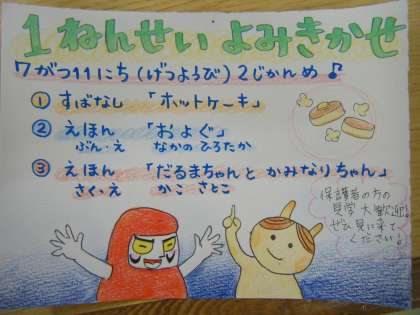 1ねんせい よみきかせ
7がつ11にち(げつようび)2じかんめ♪
① すばなし 「ホットケーキ」
② えほん 「およぐ」
ぶん・え なかの ひろたか
③ えほん 「だるまちゃんと かみなりちゃん」
さく・え かこ さとこ
保護者の方の
見学 大歓迎!
ぜひ 見に来て
ください。